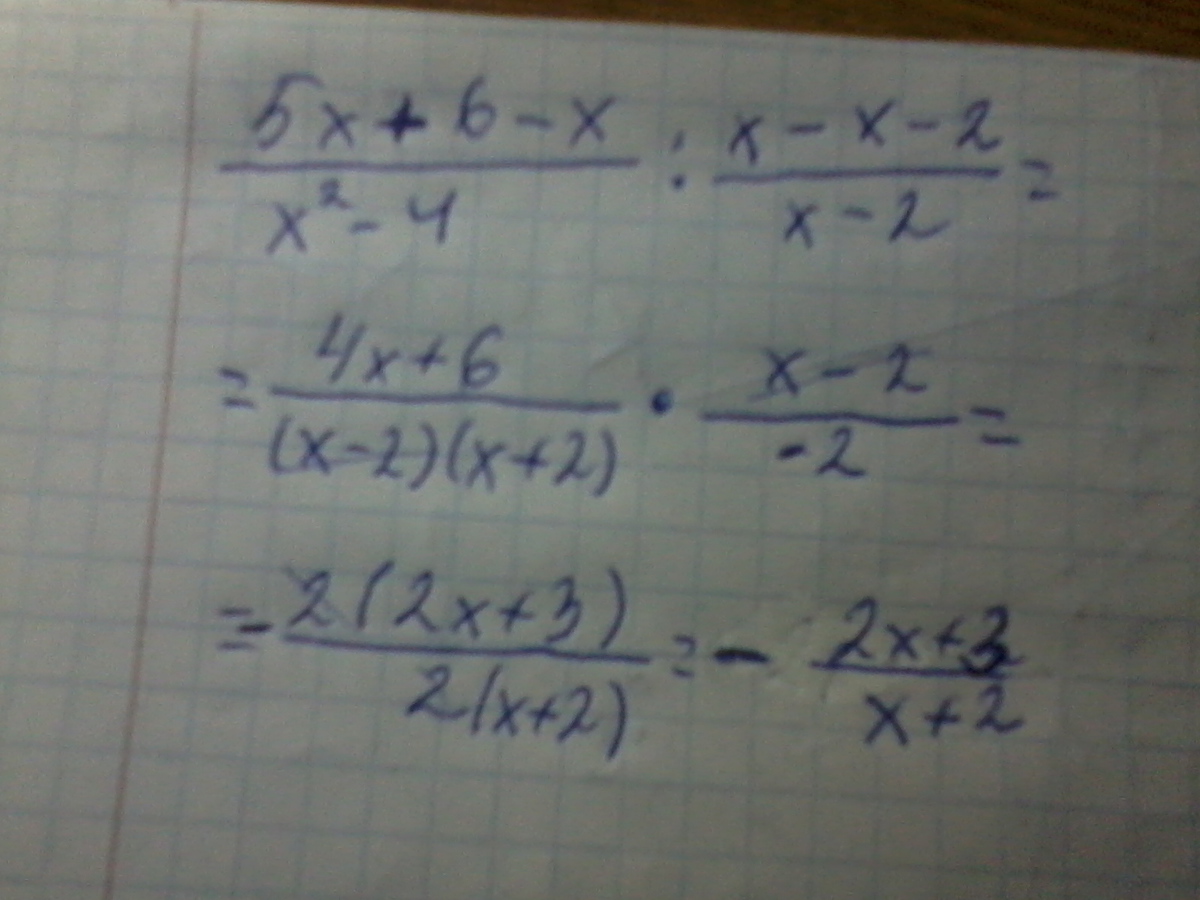 (5x + 6 - x)/(x² - 4) : (x - x - 2)/(x - 2) =
= (4x + 6)/((x - 2)(x + 2)) · (x - 2)/(-2) =
= - 2(2x + 3)/2(x + 2) = - (2x + 3)/(x + 2)